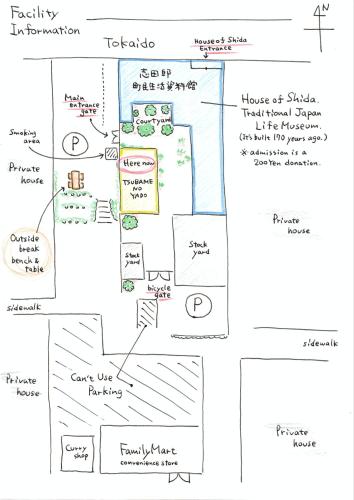 Facility
Information
N
Tokaido
House of Shida
Entrance
志田邸
町民生活資料館
Main
entrance
gate
courtyard
House of Shida.
Traditional Japan
Life Museum.
(It's built 170 years ago.)
※ admission is a
200yen donation.
Smoking
area
P
Here now
TSUBAME
NO
YADO
Private
house
Private
house
Outside
break
bench &
table
Stock
yard
Stock
yard
bicycle
gate
P
sidewalk
sidewalk
Private
house
Can't Use
Parking
Private
house
Curry
shop
FamilyMart
convenience store